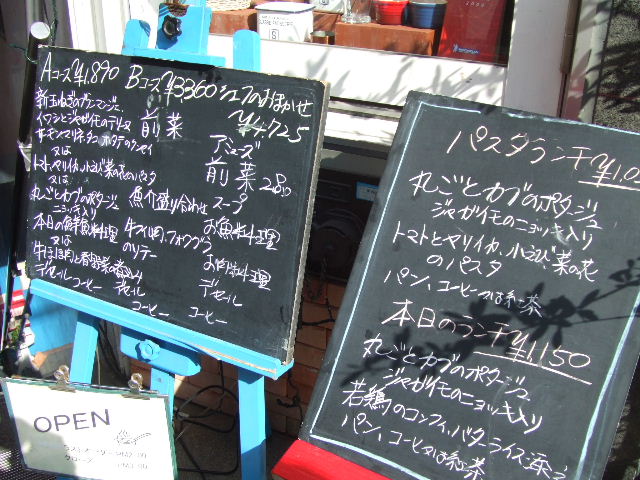 Aコース¥1,890 Bコース¥3360 シェフのおまかせ
¥4.725
新玉ねぎのブランマンジェ、
イワシとジャガイモのテリーヌ
前菜
アミューズ
又は
前菜 2品
トマト、ヤリイカ、小えび、菜の花のパスタ
又は
魚介盛り合わせ
スープ
丸ごとカブのポタージュ
ニョッキ入り
お魚料理
本日の鮮魚料理
牛フィレ肉、フォワグラ
のソテー
又は
お肉料理
デセール
デセール コーヒー
デセール
コーヒー
コーヒー
パスタランチ ¥1,0
丸ごとカブのポタージュ
ジャガイモのニョッキ入り
トマトとヤリイカ、小えび、菜の花
のパスタ
パン、コーヒー又は紅茶
本日のランチ ¥1,150
丸ごとカブのポタージュ
ジャガイモのニョッキ入り
若鶏のコンフィ、バターライス添え
パン、コーヒー又は紅茶
OPEN